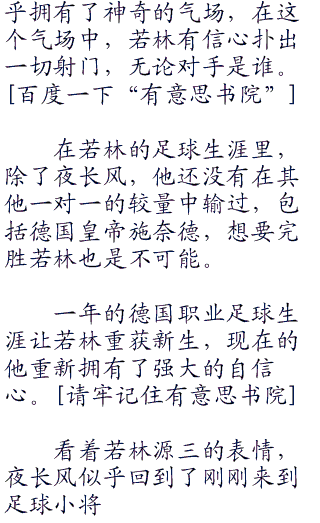 乎拥有了神奇的气场，在这
个气场中，若林有信心扑出
一切射门，无论对手是谁。
[百度一下“有意思书院”]
在若林的足球生涯里，
除了夜长风，他还没有在其
他一对一的较量中输过，包
括德国皇帝施奈德，想要完
胜若林也是不可能。
一年的德国职业足球生
涯让若林重获新生，现在的
他重新拥有了强大的自信
心。[请牢记住有意思书院]
看着若林源三的表情，
夜长风似乎回到了刚刚来到
足球小将